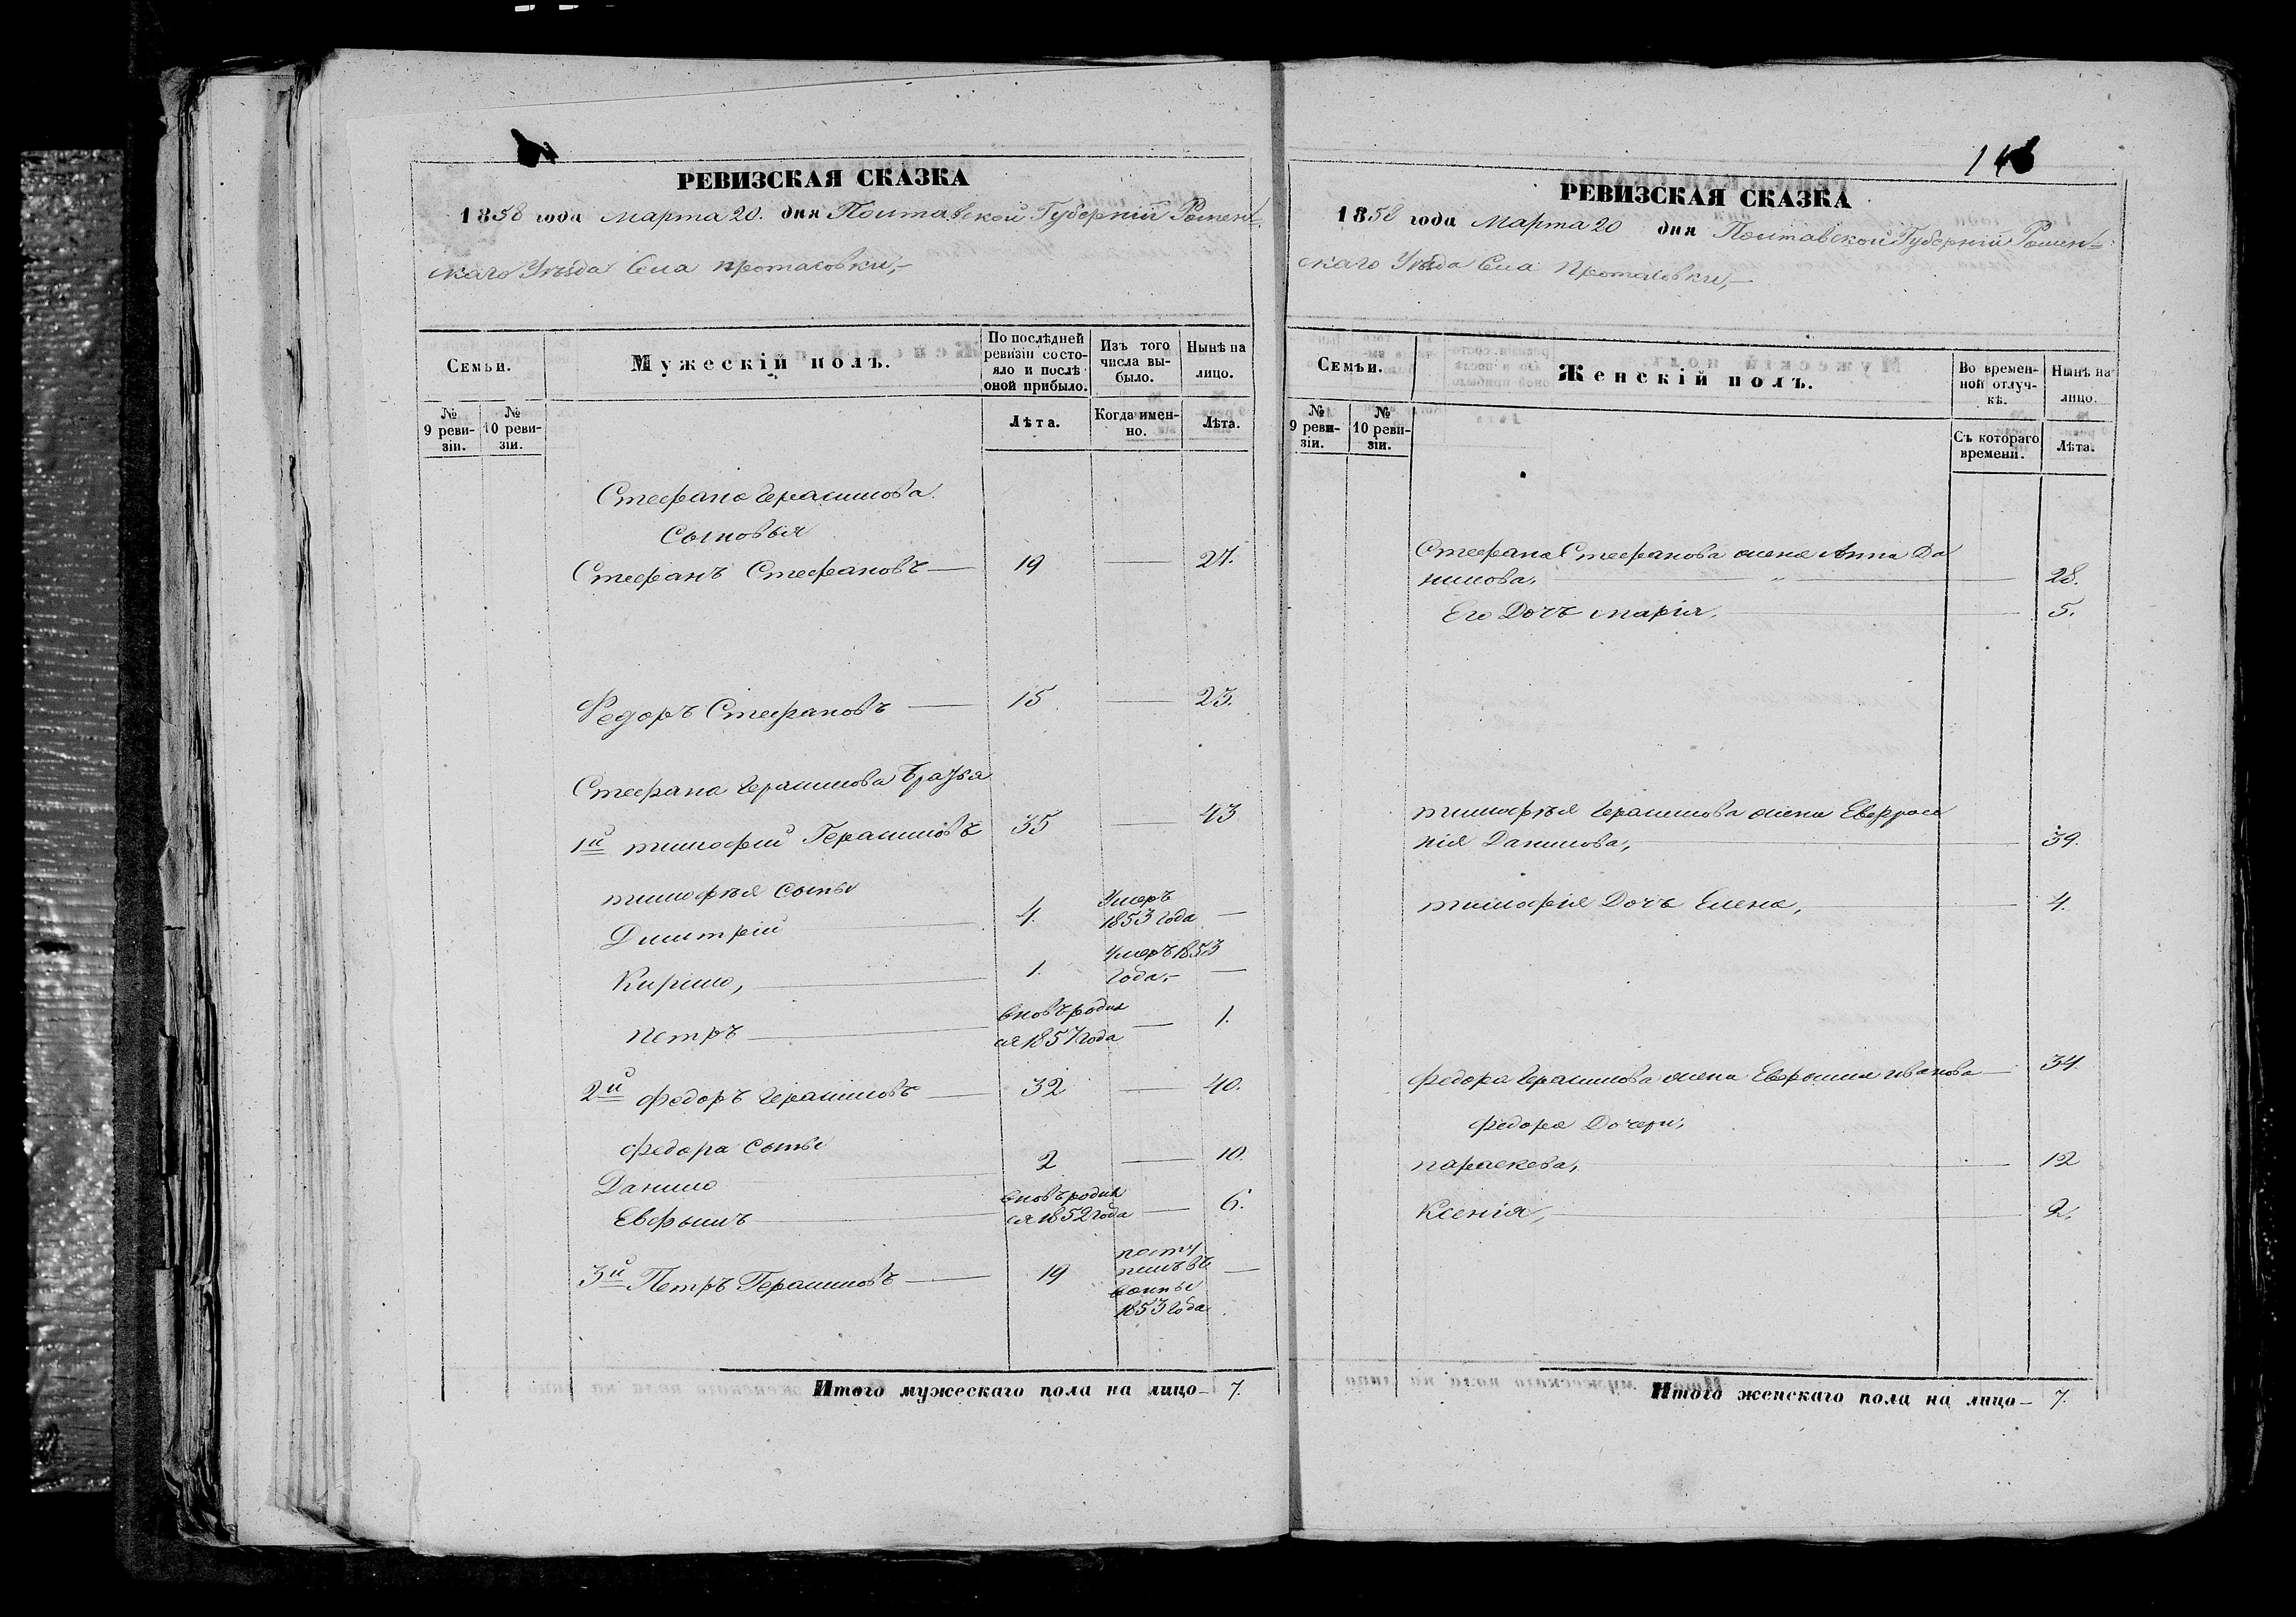 РЕВИЗСКАЯ СКАЗКА
1858 года Марта 20. дня Полтавской Губернiи Ромен-
скаго Уезда Села Протасовки,
Семьи.
Мужескiй полъ.
По послѣдней
ревизiи состо-
яло и послѣ
оной прибыло.
Изъ того
числа вы-
было.
Нынѣ на
лицо.
№
9 реви-
зiи.
№
10 реви-
зiи.
Лѣта.
Когда имен-
но.
Лѣта.
Стефана Герасимова
Сыновья
Стефанъ Стефановъ 19 — 27.
Федоръ Стефановъ 15 — 23.
Стефана Герасимова Братья
1й Тимофей Герасимовъ 35 — 43
Тимофея Сыны
Димитрiй 4. Умеръ 1853 года —
Кирило, 1. Умеръ 1853 года, —
Петръ вновь родил
ся 1857 года — 1.
2й Федоръ Герасимовъ 32 — 40.
Федора Сыны
Данило 2 — 10.
Евфимъ вновь родил
ся 1852 года — 6.
3й Петръ Герасимовъ 19 посту
пилъ въ
воины
1853 года —
Итого мужескаго пола на лицо 7.
148
РЕВИЗСКАЯ СКАЗКА
1858 года Марта 20 дня Полтавской Губернiи Ромен-
скаго Уезда Села Протасовки,
Семьи.
Женскiй полъ.
Во времен-
ной отлуч-
кѣ.
Нынѣ на
лицо.
№
9 реви-
зiи.
№
10 реви-
зiи.
Съ котораго
времени.
Лѣта.
Стефана Стефанова жена Анна Да
нилова, 28.
Его Дочь Марiя, 5.
Тимофея Герасимова жена Евфроси
нiя Данилова, 39.
Тимофея Дочь Елена, 4.
Федора Герасимова жена Евфимия Иванова 34.
Федора Дочери,
Параскева, 12
Ксенiя, 2.
Итого женскаго пола на лицо 7.